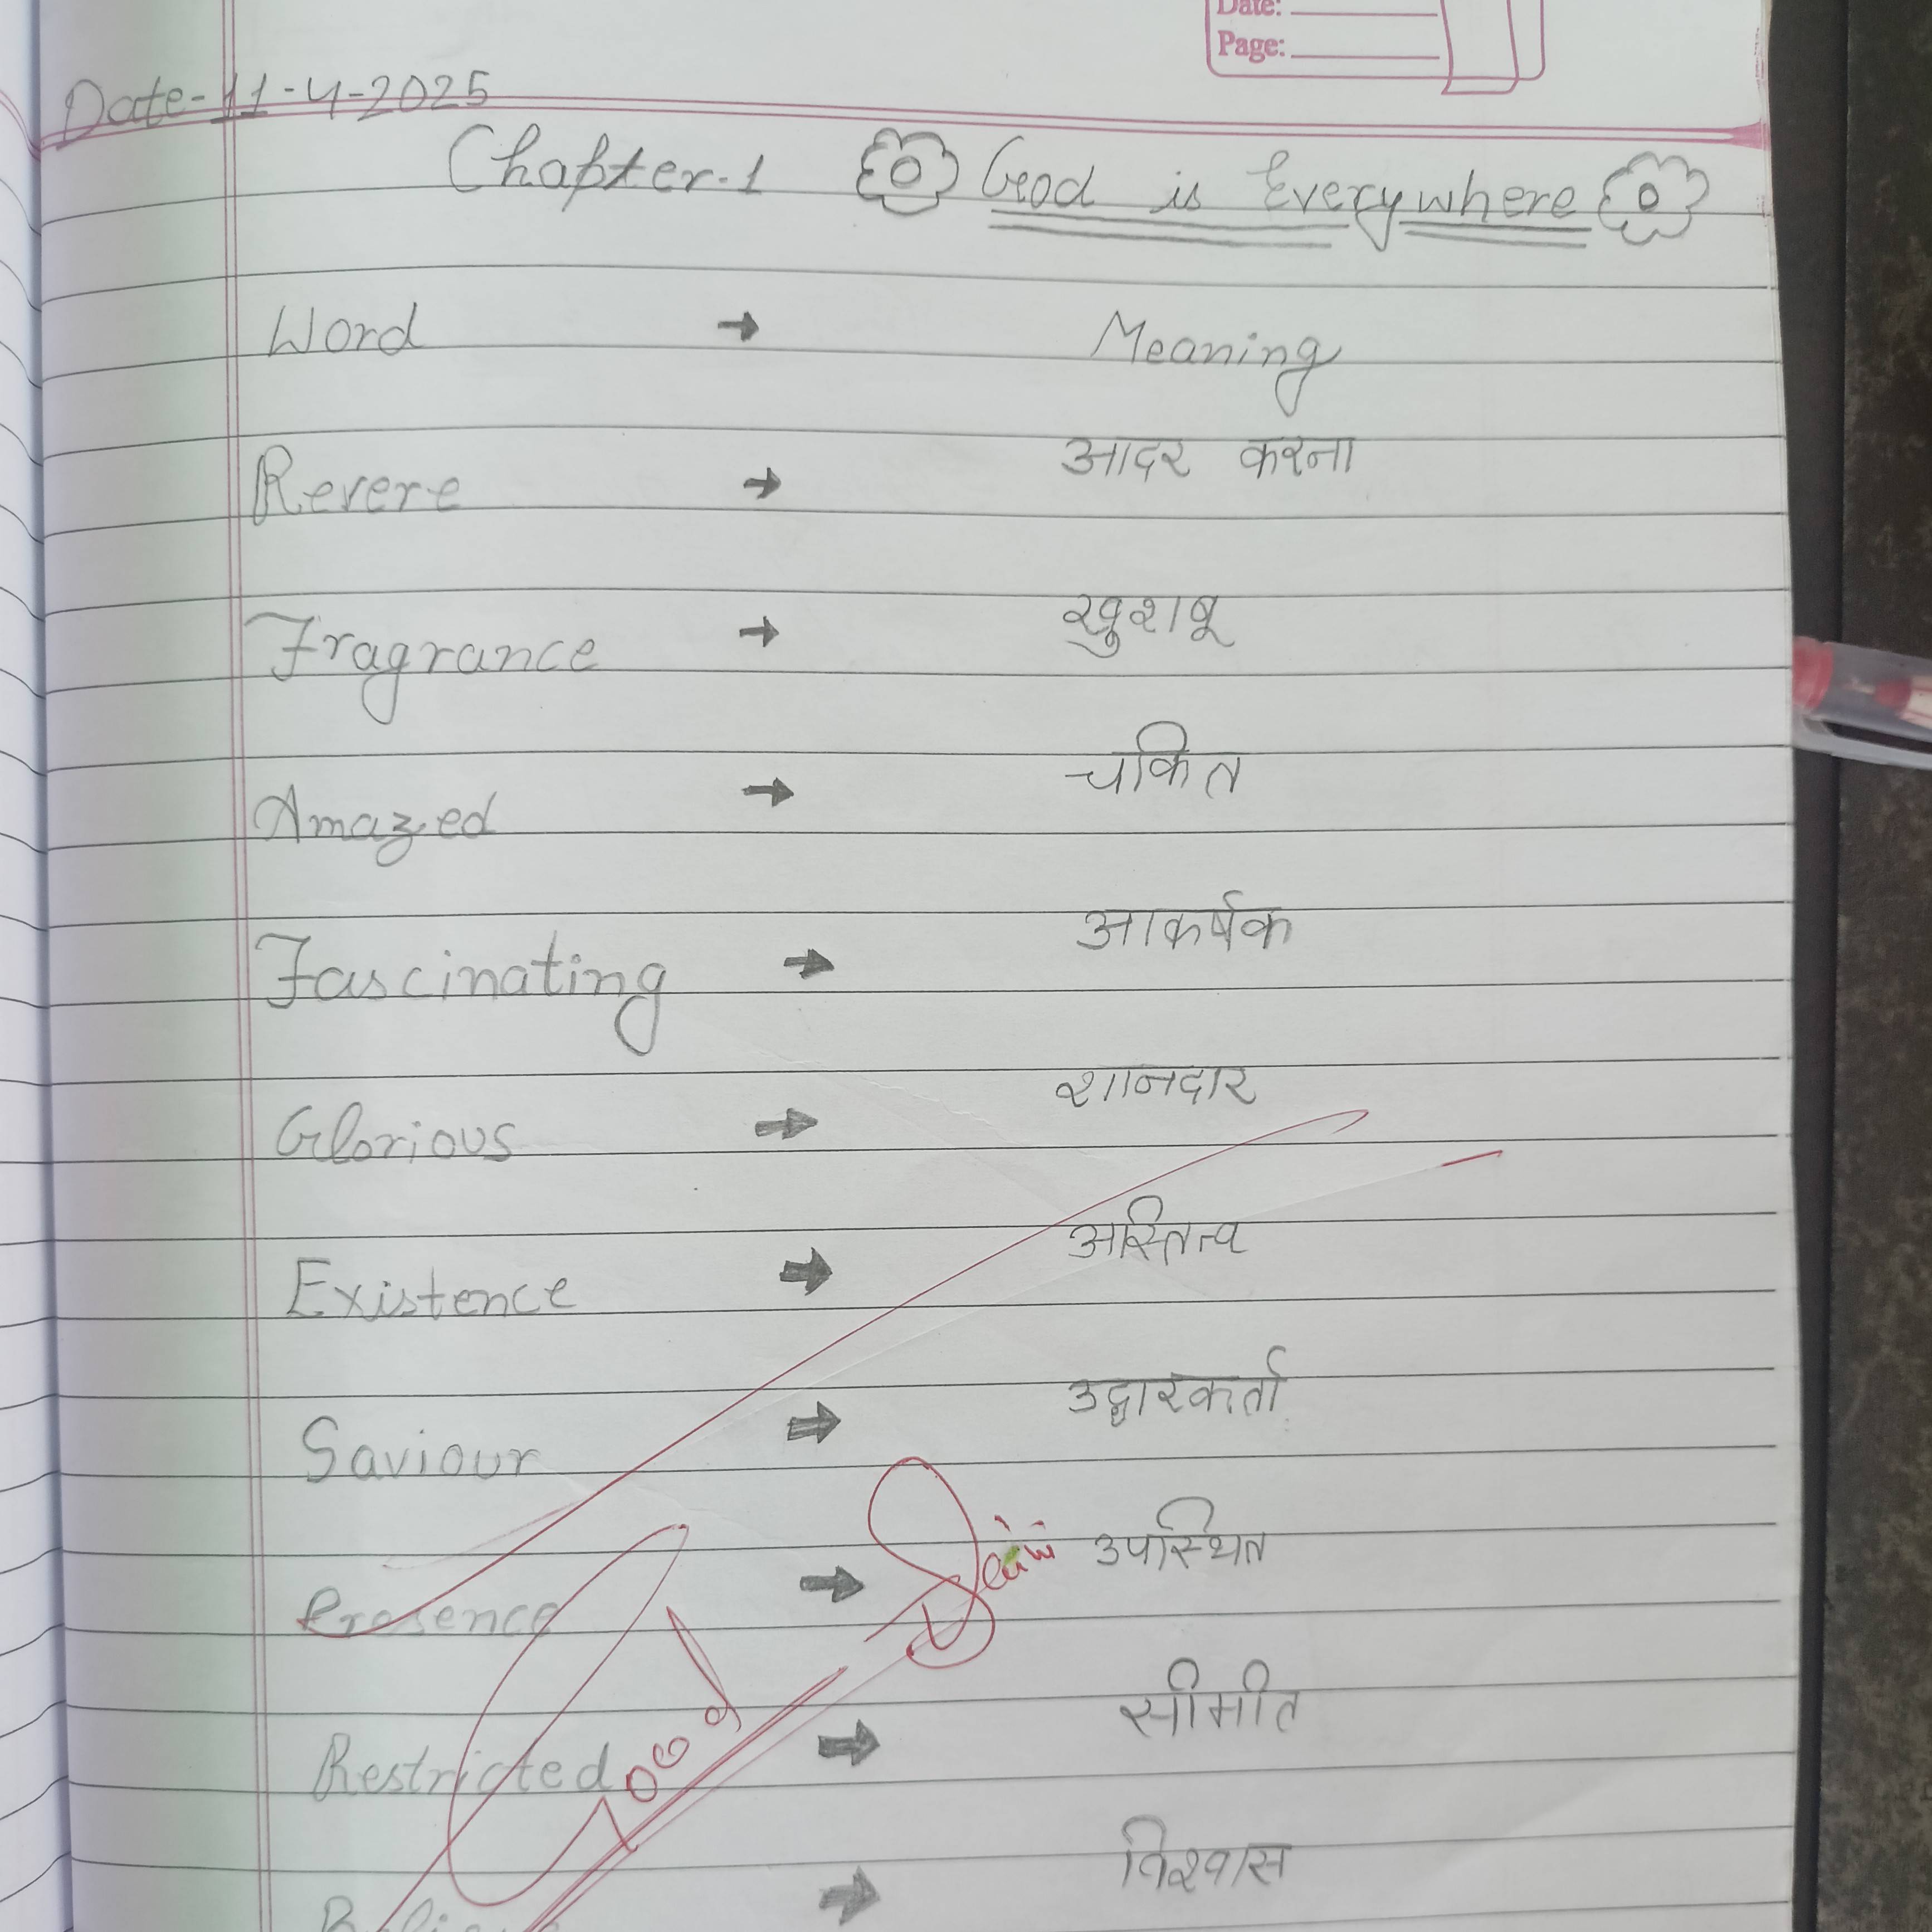 Date:
Page:
Date-11-4-2025
Chapter-1 God is Everywhere
Word → Meaning
Revere → आदर करना
Fragrance → खुशबू
Amazed → चकित
Fascinating → आकर्षक
Glorious → शानदार
Existence → अस्तित्व
Saviour → उद्धारकर्ता
Presence → उपस्थित
Restricted → सीमीत
→ विश्वास
Good